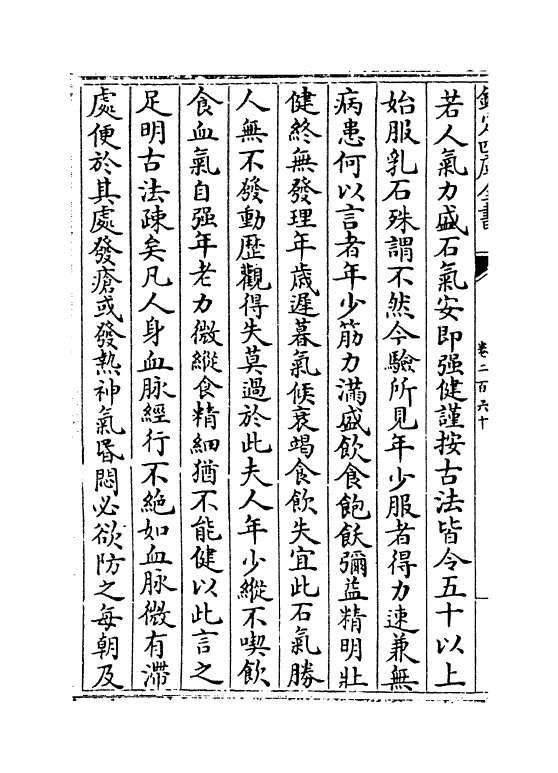 欽定四庫全書
卷二百六十
若人氣力盛石氣安即强健謹按古法皆令五十以上
始服乳石殊謂不然今驗所見年少服者得力速兼無
病患何以言者年少筋力滿盛飲食飽飫彌益精明壯
健終無發理年歲遲暮氣候衰竭食飲失宜此石氣勝
人無不發動歴觀得失莫過於此夫人年少縱不喫飲
食血氣自强年老力微縱食精細猶不能健以此言之
足明古法疎矣凡人身血脉經行不絶如血脉微有滯
處便於其處發瘡或發熱神氣昬悶必欲防之每朝及